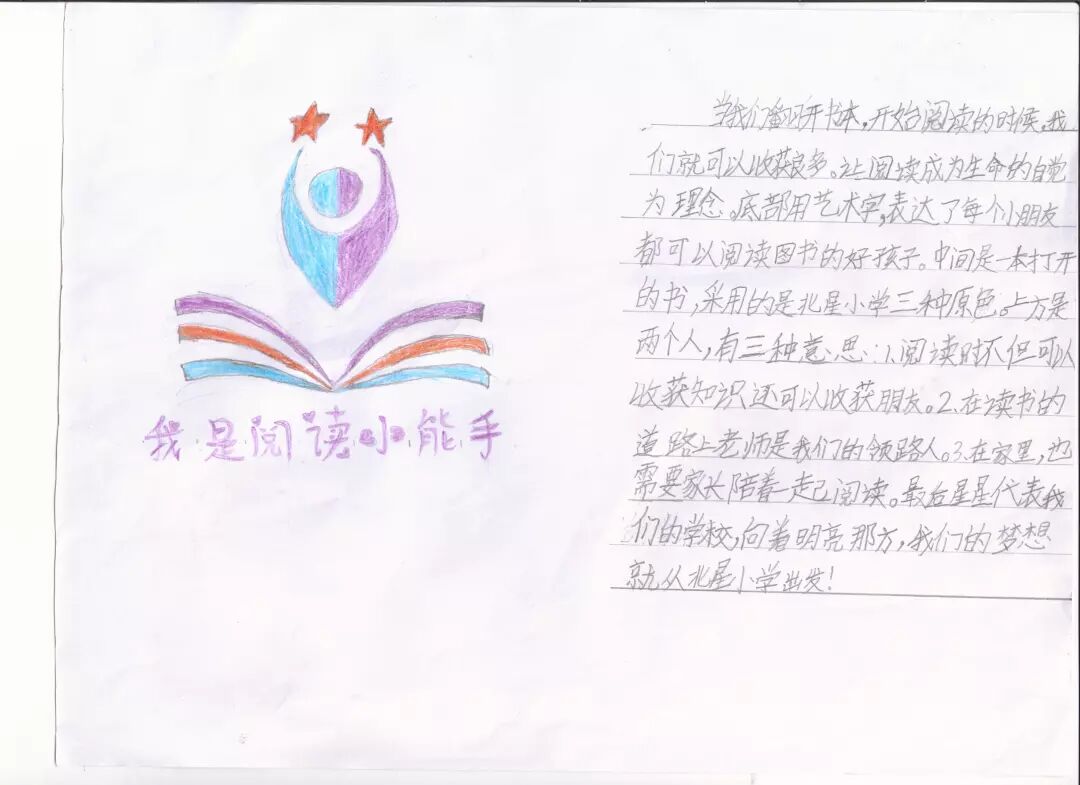 我是阅读小能手
当我们翻开书本,开始阅读的时候,我
们就可以收获良多。让阅读成为生命的自觉
为理念。底部用艺术字,表达了每个小朋友
都可以阅读图书的好孩子。中间是一本打开
的书,采用的是北星小学三种原色。上方是
两个人,有三种意思:1.阅读时不但可以
收获知识还可以收获朋友。2.在读书的
道路上老师是我们的领路人。3.在家里,也
需要家长陪着一起阅读。最后星星代表我
们的学校,向着明亮那方,我们的梦想
就从北星小学出发!